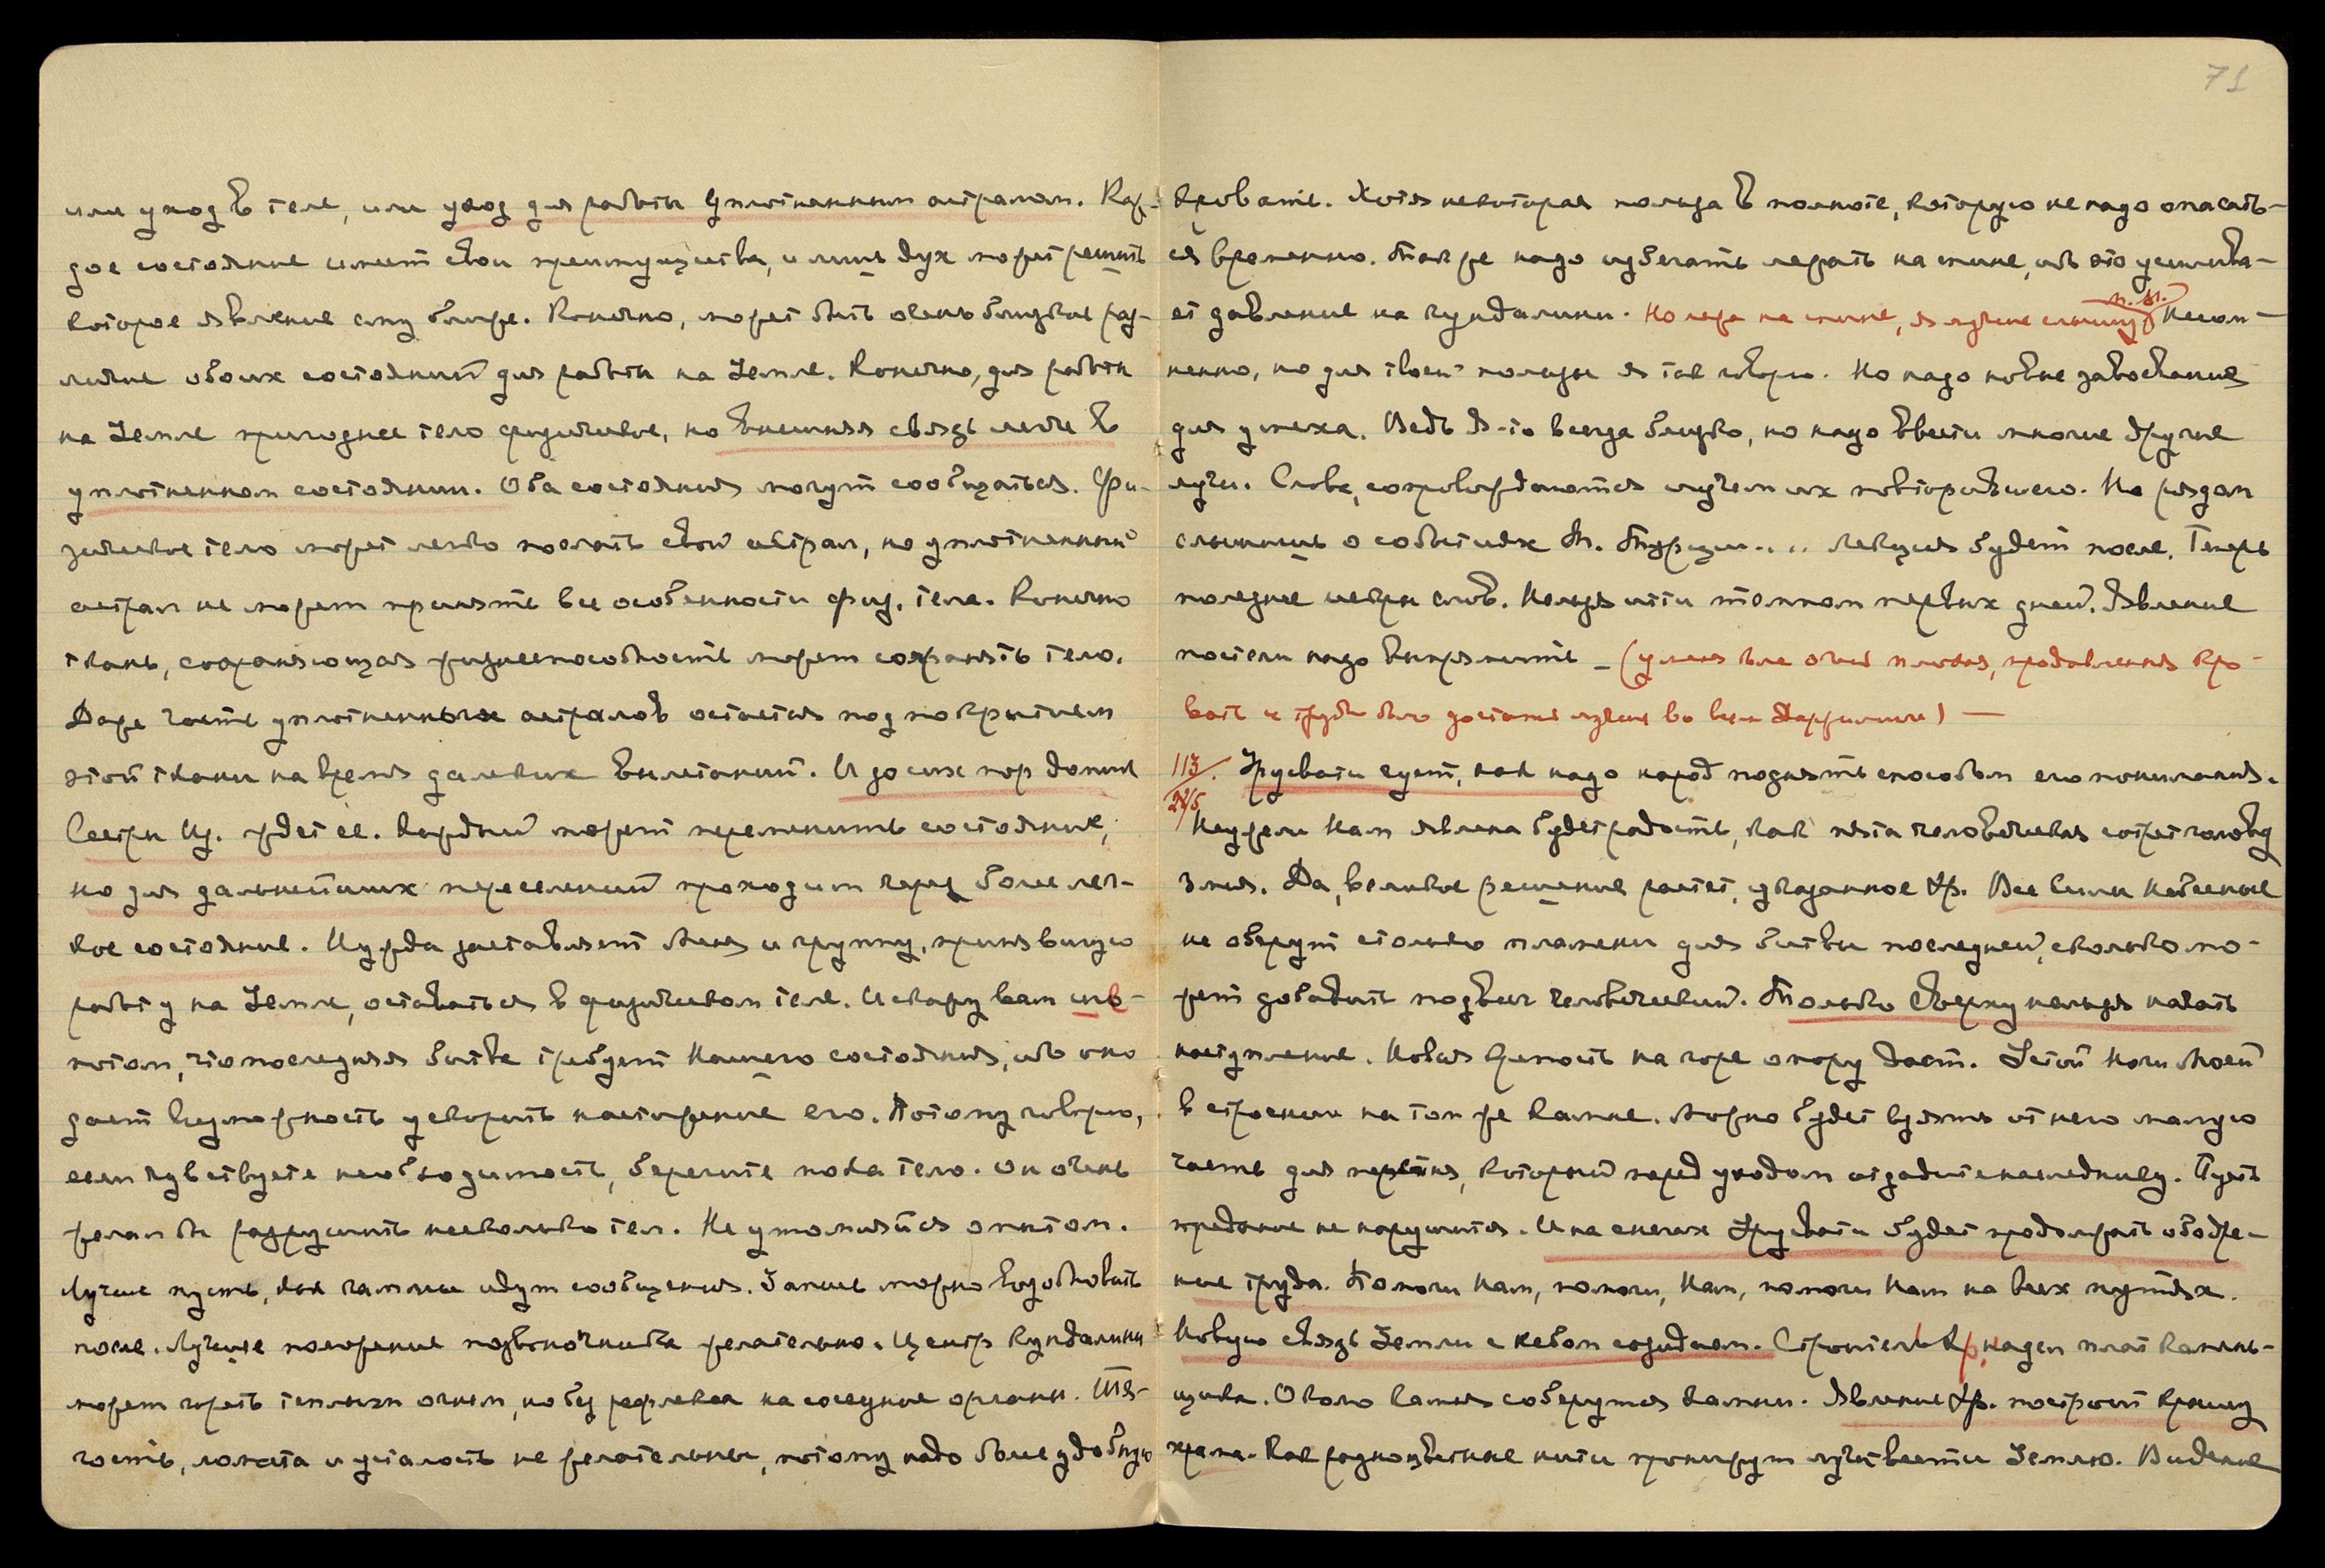 71
или уход в теле, или уход для работы уплотненным астралом. Каж-
дое состояние имеет свои преимущества, и лишь дух может решить
которое явление ему ближе. Конечно, может быть очень близкое раз-
личие обоих состояний для работы на Земле. Конечно, для работы
на Земле пригоднее тело физическое, но внешняя связь легче в
уплотненном состоянии. Оба состояния могут сообщаться. Фи-
зическое тело может легко послать свой астрал, но уплотненный
астрал не может принять все особенности физ. тела. Конечно
ткань, сохраняющая жизнеспособность может сохранять тело.
Даже часть уплотненных астралов остается под покрытием
этой ткани на время далеких вылетаний. И до сих пор домик
Сестры Из. ждет ее. Каждый может переменить состояние,
но для дальнейших переселений проходим через более лег-
кое состояние. Нужда заставляет Меня и группу, принявшую
работу на Земле, оставаться в физическом теле. И скажу вам шо-
потом, что последняя битва требует Нашего состояния, ибо оно
дает возможность ускорить наступление его. Потому говорю,
если чувствуете необходимость, берегите пока тело. Он очень
желал бы разрушить несколько тел. Не утомляйся опытом.
Лучше пусть, как капли идут сообщения. Запись можно возобновить
после. Лучшее положение позвоночника желательно. Центр Кундалини
может гореть теплым огнем, но без рефлекса на соседние органы. Тя-
гость, ломота и усталость не желательны, потому надо более удобную
кровать. Хотя некоторая польза в полноте, которую не надо опасать-
ся временно. Также надо избегать лежать на спине, ибо это усилива-
ет давление на кундалини. Но лежа на спине, я лучше слышу Несом-
ненно, но для твоей пользы я так говорю. Но надо новые завоевания
для успеха. Ведь Я-то всегда близко, но надо ввести многие другие
лучи. Слова, сопровождаются лучем их повторявшего. Но рядом
слышишь о событиях М. Турции.... лекция будет после. Теперь
последнее искры слов. Нельзя итти темпом первых дней. Явление
постели надо выпрямить – (у меня была очень плохая, продавленная кро-
вать и трудно было достать лучше во всем Дарджилинге) —
113/. Урусвати чует, как надо народ поднять способом его понимания.
22/5
Неужели Нам явлена будет радость, как пята человеческая сотрет голову
Змия. Да, великое решение растет, указанное Ур. Все Силы Небесные
не оберут столько пламени для битвы последней, сколько мо-
жет добавить подвиг человеческий. Только сверху нельзя начать
наступление. Новая ценность на горе опору дает. Устой Ноги Моей
в строении на том же Камне. Можно будет взять от него малую
часть для перстня, который перед уходом отдадите наследнику. Пусть
предание не нарушится. И на снегах Урусвати будет продолжать ободре-
ние труда. Помоги Нам, помоги, Нам, помоги Нам на всех путях.
Новую связь Земли с небом создадим. Строитель Хр. наден плат Камень-
щика. Около Камня соберутся камни. Явление Ур. построит крышу
храма. Как разноцветные нити пронижут лучи вести Землю. Видение